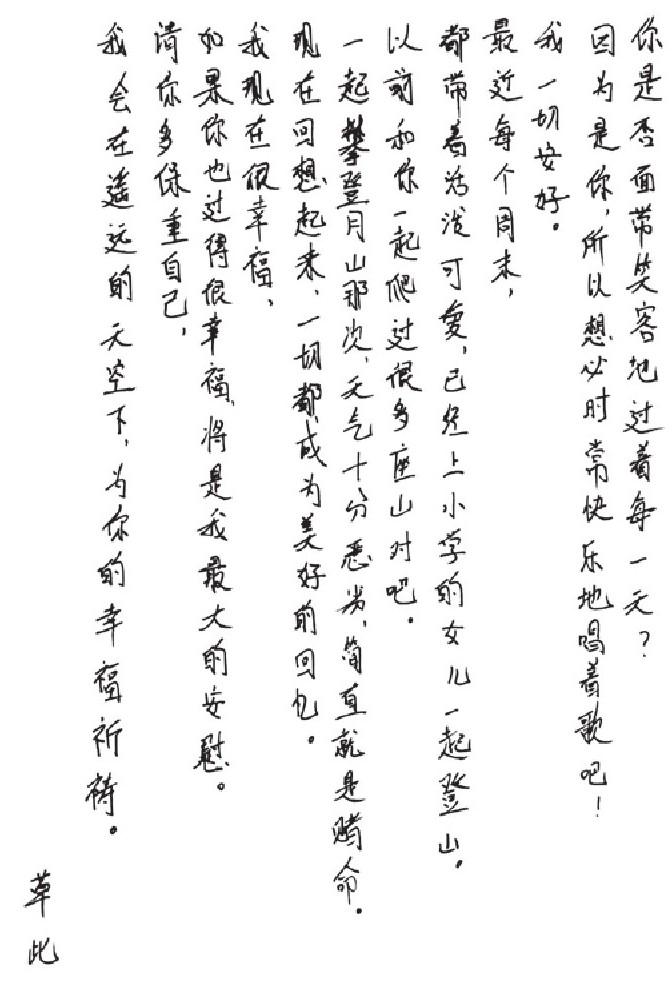 你是否面带笑容地过着每一天？
因为是你，所以想必时常快乐地唱着歌吧！
我一切安好。
最近每个周末，
都带着活泼可爱，已经上小学的女儿一起登山。
以前和你一起爬过很多座山对吧。
一起攀登月山那次，天气十分恶劣，简直就是赌命。
现在回想起来，一切都成为美好的回忆。
我现在很幸福，
如果你也过得很幸福，将是我最大的安慰。
请你多保重自己，
我会在遥远的天空下，为你的幸福祈祷。
草此